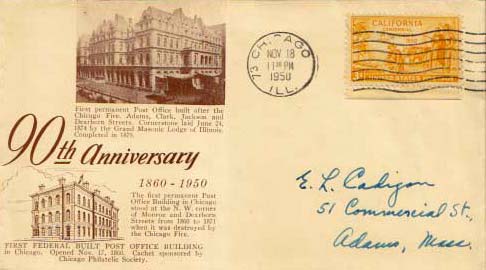 First permanent Post Office built after the
Chicago Fire. Adams, Clark, Jackson and
Dearborn Streets. Cornerstone laid June 24,
1874 by the Grand Masonic Lodge of Illinois.
Completed in 1879.
90th Anniversary
1860 - 1950
The first permanent Post
Office Building in Chicago
stood at the N. W. corner
of Monroe and Dearborn
Streets from 1860 to 1871
when it was destroyed by
the Chicago Fire.
FIRST FEDERAL BUILT POST OFFICE BUILDING
in Chicago. Opened Nov. 17, 1860. Cachet sponsored by
Chicago Philatelic Society.
73 CHICAGO
NOV 18
PM
1950
ILL.
CALIFORNIA
CENTENNIAL
UNITED STATES
E. L. Cadigan
51 Commercial St.,
Adams, Mass.